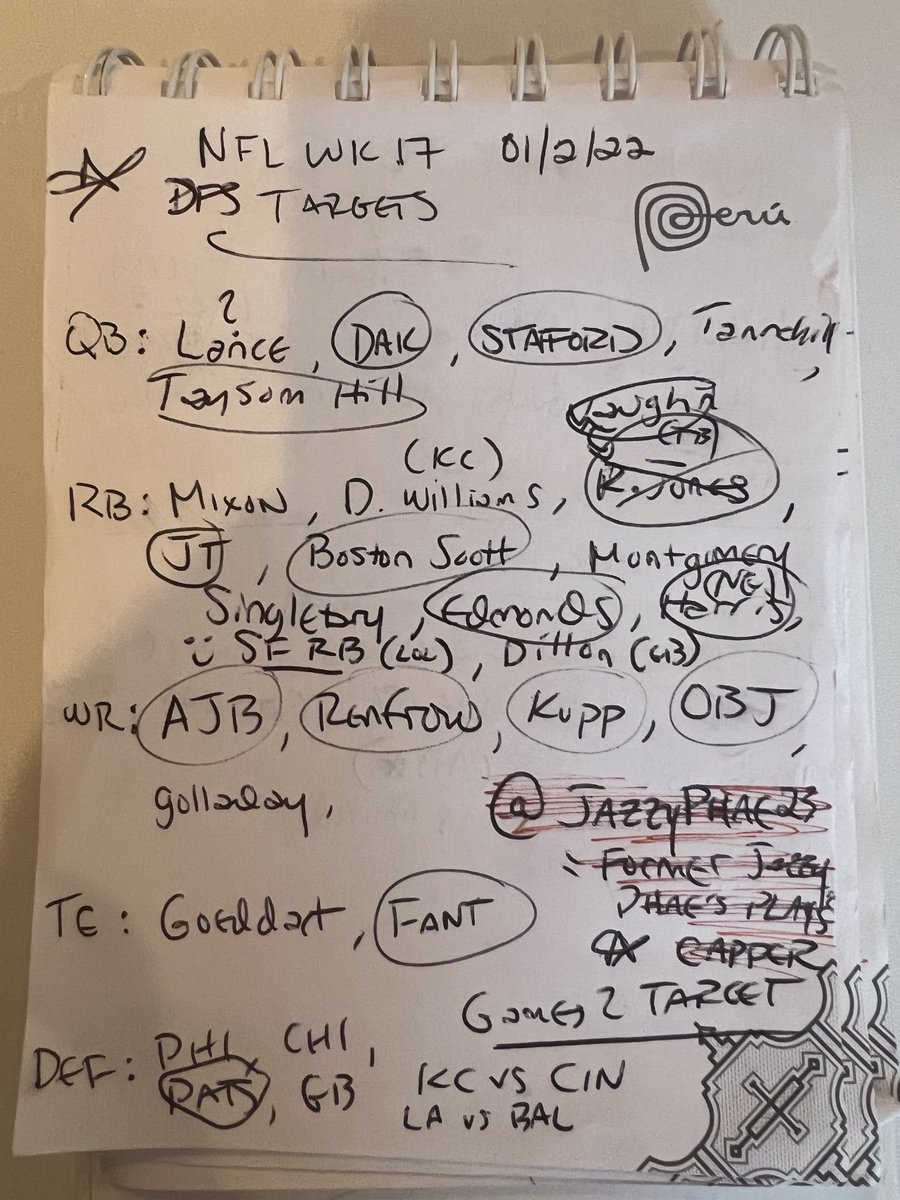 NFL WK 17 01/2/22
DFS TARGETS
Perú
?
QB: Lance, DAK, STAFFORD, Tannehill,
Taysom Hill
Vaughn
(TB)
(KC)
RB: Mixon, D. Williams, R. Jones,
JT, Boston Scott, Montgmery
Singletary, Edmonds, Harris,
(NE)
SF RB (LOL), Dillon (GB)
WR: AJB, RENFROW, KUPP, OBJ,
golladay,
@JAZZYPHAE23
FORMER JAZZY
PHAE'S PLAYS
CAPPER
TE: Goeddart, FANT
Games 2 TARGET
DEF: PHI, CHI,
PATS, GB
KC VS CIN
LA VS BAL